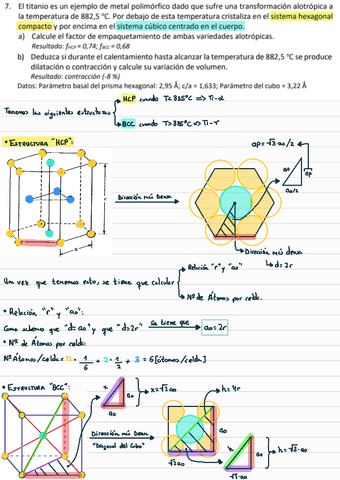 7. El titanio es un ejemplo de metal polimórfico dado que sufre una transformación alotrópica a
la temperatura de 882,5 °C. Por debajo de esta temperatura cristaliza en el sistema hexagonal
compacto y por encima en el sistema cúbico centrado en el cuerpo.
a) Calcule el factor de empaquetamiento de ambas variedades alotrópicas.
Resultado: fHCP = 0,74; fBCC = 0,68
b) Deduzca si durante el calentamiento hasta alcanzar la temperatura de 882,5 °C se produce
dilatación o contracción y calcule su variación de volumen.
Resultado: contracción (-8 %)
Datos: Parámetro basal del prisma hexagonal: 2,95 Å; c/a = 1,633; Parámetro del cubo = 3,22 Å
HCP cuando T< 885°C => Ti-α
Tenemos las siguientes estructuras
BCC cuando T> 885°C => Ti-
• ESTRUCTURA "HCP":
ap=√3·ao/2
ao
ap
ao/2
c
a
Dirección más densa
Dirección más densa
d=2r
Relación "r" y "ao"
Una vez que tenemos esto, se tiene que calcular
Nº de Átomos por celda.
• Relación "r" y "ao":
Como sabemos que "d=ao" y que "d=2r" Se tiene que ao=2r
• Nº de Átomos por celda:
Nº Átomos/celda = 12 · 1/6 + 2 · 1/2 + 3 = 6 [átomos/celda]
• ESTRUCTURA "BCC":
x
ao
ao
x=√2·ao
h=4r
Dirección más densa
"Diagonal del Cubo"
ao
√2·ao
h
ao
√2·ao
h=√3·ao